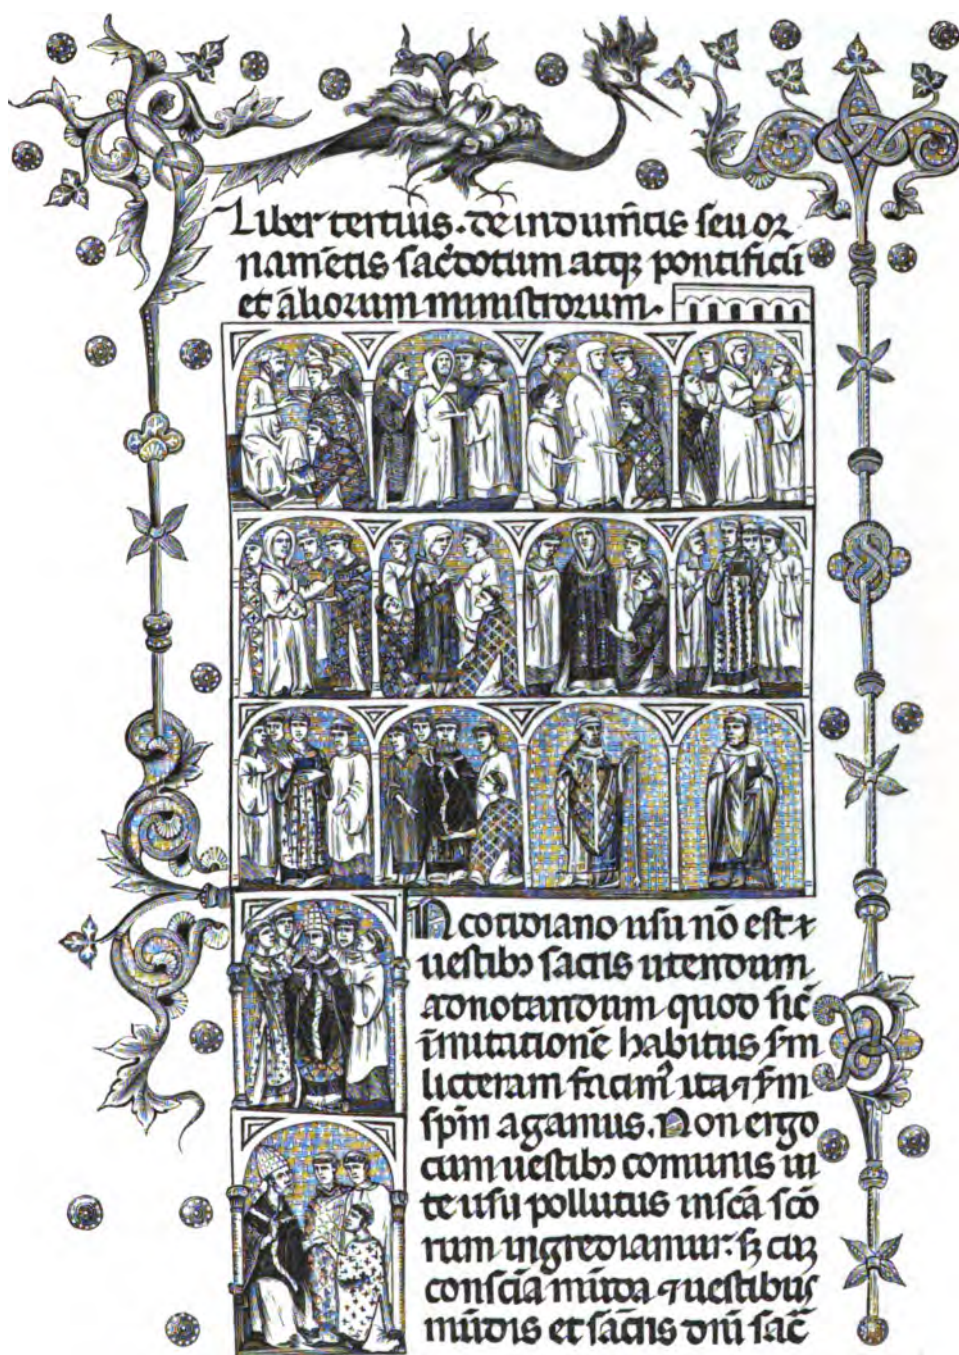 Liber tertius. de indum̄tis seu or
nam̄etis sac̄dotum atqꝫ pontificū
et aliorum ministrorum.
N cotidiano usu nō est
uestibꝫ sacris utendum
adnotandum quod sic̄
imitationē habitus
litteram facim᷒ ita ⁊
sp̄m agamus. Non ergo
cum uestibꝫ comunis ui
te usu pollutus in sc̄a sc̄o
rum ingrediamur. sꝫ cuꝫ
consc̄ia mūda ⁊ uestibus
mūdis et sac̄ris dn̄i sac̄